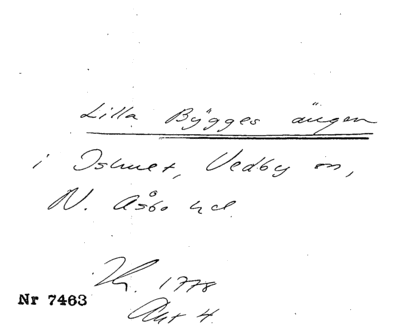 Lilla Bygges ängen
i Ishult, Vedby sn,
N. Åsbo hd.
1778
Akt 4.
Nr 7463